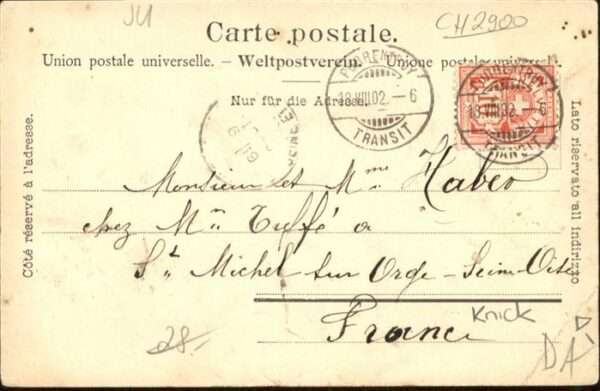 JU
CH2900
Carte postale.
Union postale universelle. – Weltpostverein. – Unione postale universelle.
PORRENTRUY
18.VIII.02.–6
TRANSIT
PORRENTRUY
18.VIII.02.–6
TRANSIT
Nur für die Adresse.
Côté réservé à l'adresse.
Lato riservato all indirizzo
Monsieur et Mme Haber
chez Mr Tuffé à
St Michel sur Orge – Seine Oise
France
Knick
28.-
DA